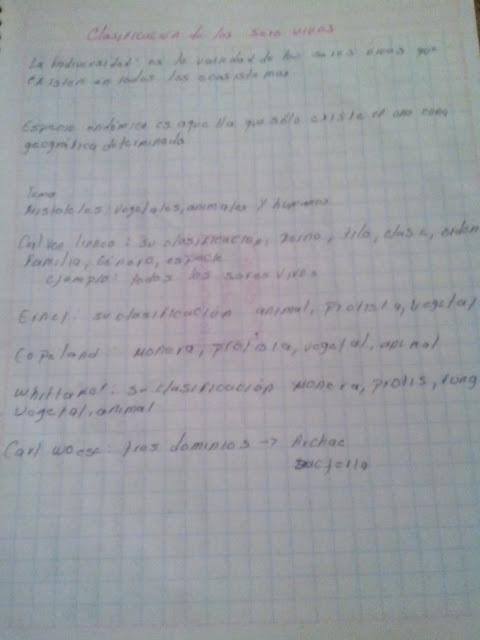 Clasificacion de los seres vivos
La biodiversidad: es la variedad de los seres vivos que
existen en todos los ecosistemas
Especie endémica es aquella que sólo existe en una zona
geográfica determinada
Tema
Aristoteles: vegetales, animales y humanos
Linneo: su clasificación, reino, filo, clase, orden
Familia, Género, especie
ejemplo: todos los seres vivos
su clasificación animal, protista, vegetal
Copeland: monera, protista, vegetal, animal
Whittaker: su clasificación monera, protis, fung
vegetal, animal
Carl woese: tres dominios -> Archae